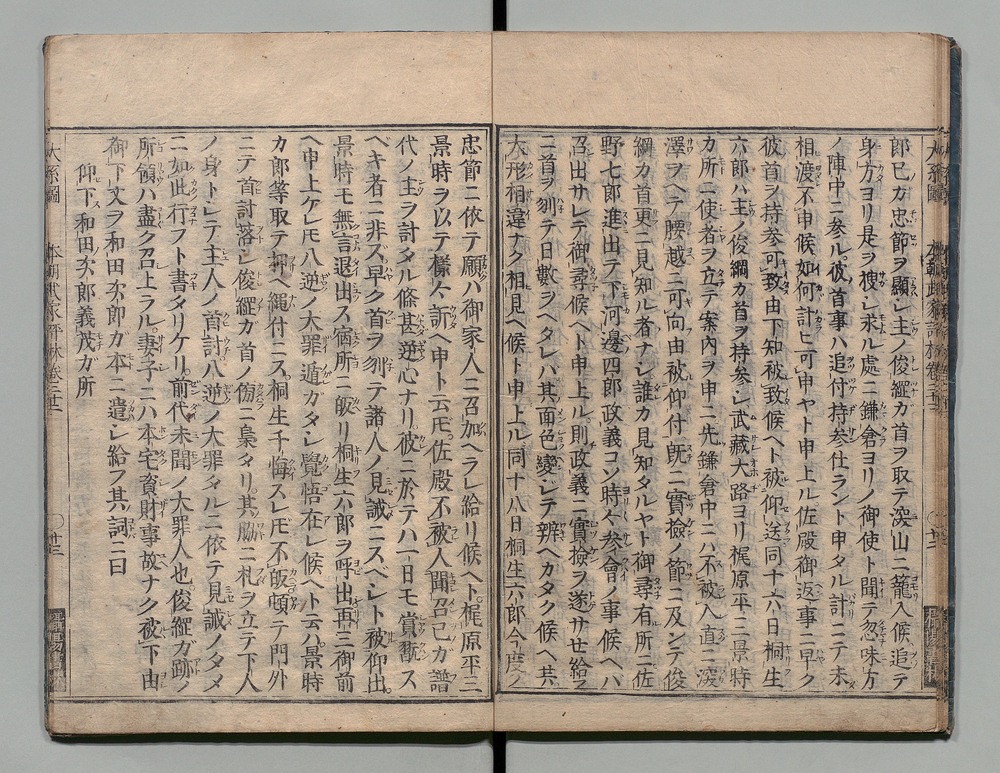 郎已カ忠節ヲ顯シ主ノ俊綱カ首ヲ取テ深山ニ籠入候追テ
身方ヨリ是ヲ捜シ求ル處ニ鎌倉ヨリノ御使ト聞テ忽味方
ノ陣中ニ参ル彼首事ハ追付持参仕ラント申タル計ニテ未
相渡不申候如何計ヒ可申ヤト申上ル佐殿御返事ニ早ク
彼首ヲ持参可致由下知被致候ヘト被仰送同十六日桐生
六郎ハ主ノ俊綱カ首ヲ持参シ武藏大路ヨリ梶原平三景時
カ所ニ使者ヲ立テ案内ヲ申ニ先鎌倉中ニハ不被入直ニ深
澤ヲヘテ腰越ニ可向由被仰付既ニ實檢ノ節ニ及ンテ俊
綱カ首更ニ見知ル者ナシ誰カ見知タルヤト御尋有所ニ佐
野七郎進出テ下河邊四郎政義コソ時々参會ノ事候ヘハ
召出サレテ御尋候ヘト申上ル則政義ニ實檢ヲ遂サセ給フ
ニ首ヲ刎テ日數ヲヘタレハ其面色變シテ辨ヘカタク候ヘ共
大形相違ナク相見ヘ候ト申上ル同十八日桐生六郎今度ノ
忠節ニ依テ願ハ御家人ニ召加ヘラレ給リ候ヘト梶原平三
景時ヲ以テ樣々訴ヘ申ト云𪜈佐殿不被聞召已カ譜
代ノ主ヲ討タル條甚逆心ナリ彼ニ於テハ一日モ賞翫ス
ヘキ者ニ非ズ早ク首ヲ刎テ諸人ノ見誡ニスヘシト被仰出
景時モ無言退出ス宿所ニ皈リ桐生六郎ヲ呼出再三御前
ヘ申上ケレ𪜈八逆ノ大罪遁ガタシ覺悟在レ候ヘト云ハ景時
カ郎等取テ押ヘ縄付ニス桐生千悔スレ𪜈不皈頓テ門外
ニテ首討落シ俊綱カ首ノ傍ニ梟タリ其脇ニ札ヲ立テ下人
ノ身トシテ主人ノ首討八逆ノ大罪タルニ依テ見誡ノタメ
ニ如此行フト書タリケリ前代未聞ノ大罪人也俊綱ガ跡ノ
所領ハ盡ク召上ラル妻子ニハ本宅資財事故ナク被下由
御下文ヲ和田次郎カ本ニ遣シ給フ其詞ニ曰
仰下和田次郎義茂カ所